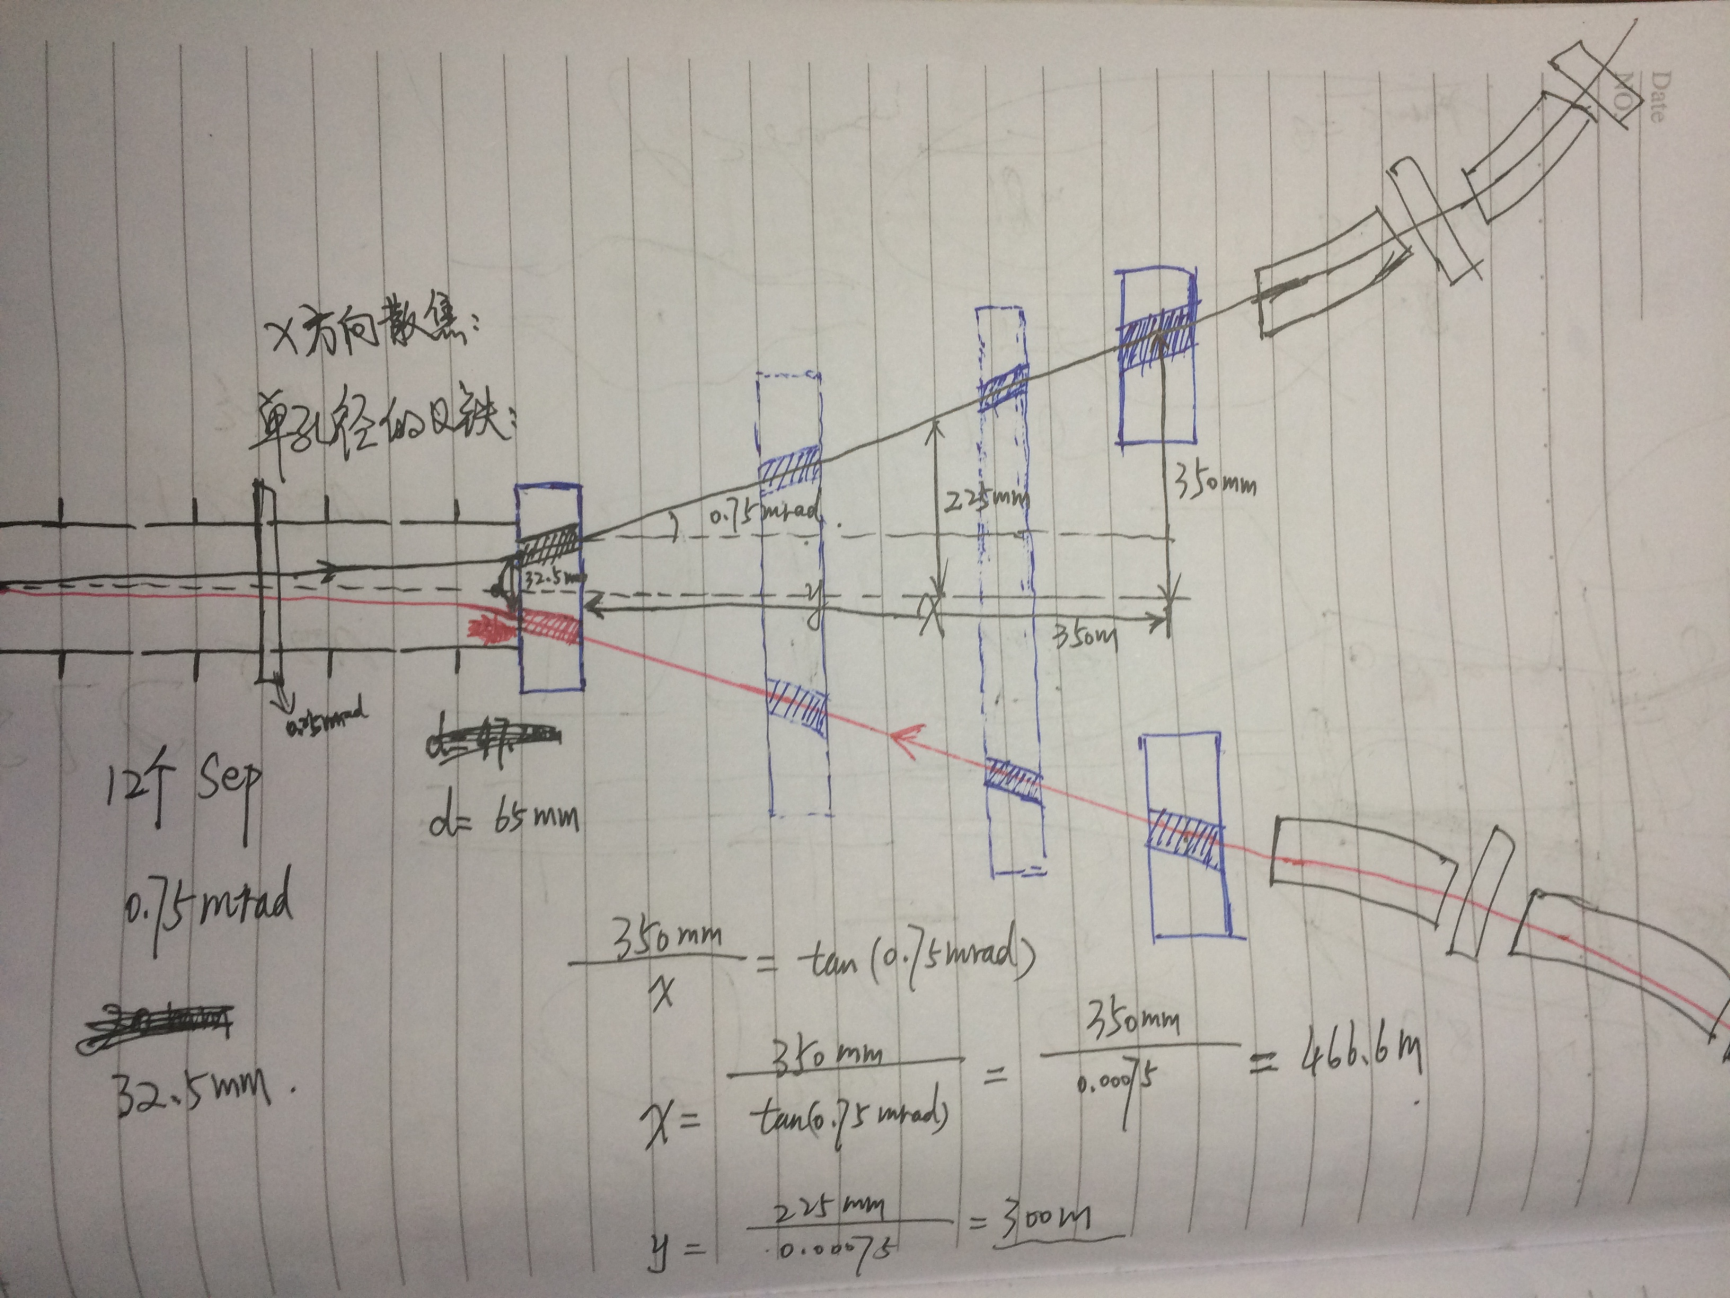 Date
NO.
x方向散焦:
单孔径的Q铁:
0.75mrad
225mm
350mm
32.5mm
y
x
350m
12个 Sep
d=65mm
0.75mrad
32.5mm.
350mm/x = tan(0.75mrad)
x = 350mm/tan(0.75mrad) = 350mm/0.00075 = 466.6m
y = 225mm/0.00075 = 300m